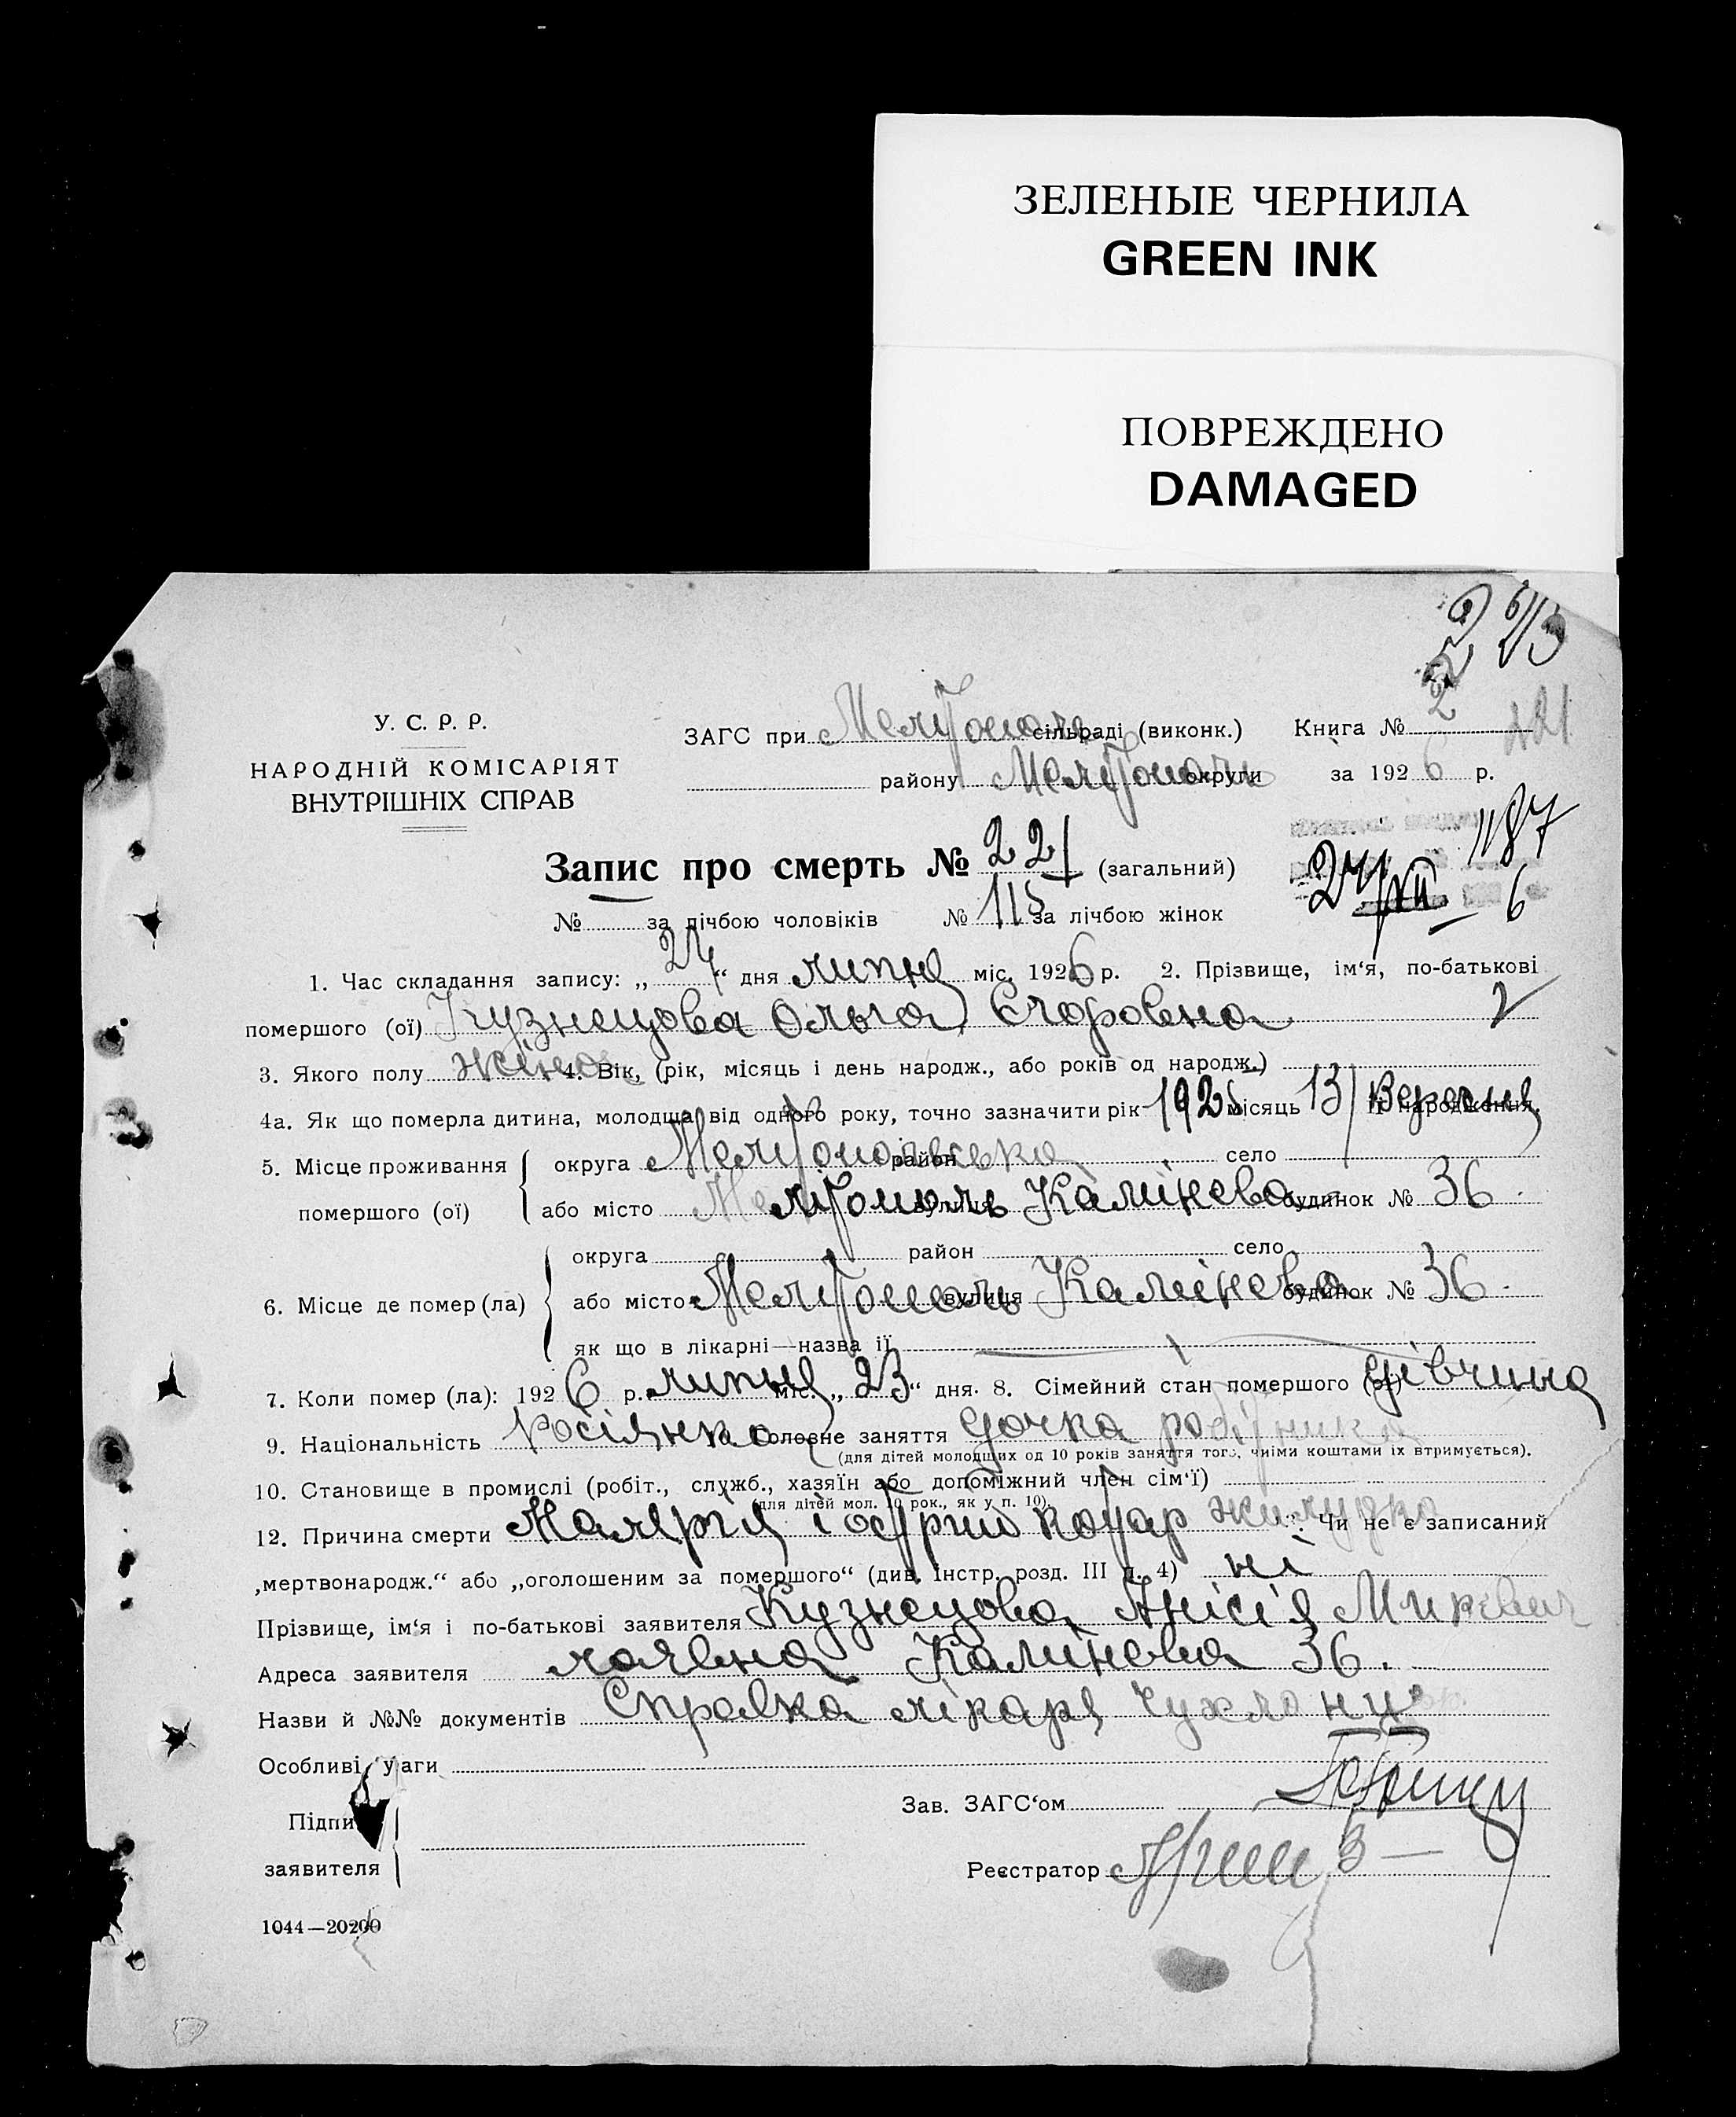 ЗЕЛЕНЫЕ ЧЕРНИЛА
GREEN INK
ПОВРЕЖДЕНО
DAMAGED
У. С. Р. Р.
НАРОДНІЙ КОМІСАРІЯТ
ВНУТРІШНІХ СПРАВ
ЗАГС при Мелітополь сільраді (виконк.) Книга № 2
району Мелітополь округи за 1926 р.
221
1187
Запис про смерть № 221 (загальний)
6
№ за лічбою чоловіків № 115 за лічбою жінок
1. Час складання запису: „24“ дня липня міс. 1926 р. 2. Прізвище, ім‘я, по-батькові
помершого (ої) Кузнецова Ольга Єгоровна
3. Якого полу жіноч 4. Вік, (рік, місяць і день народж., або років од народж.)
4а. Як що померла дитина, молодша від одного року, точно зазначити рік 1925 місяць 13/ Вересня її народження.
5. Місце проживання помершого (ої) округа Мелітопольська район село
або місто Мелітополь вулиця Калінєва будинок № 36
6. Місце де помер (ла) округа район село
або місто Мелітополь вулиця Калінєва будинок № 36
як що в лікарні—назва її
7. Коли помер (ла): 1926 р. липня міс. „23“ дня. 8. Сімейний стан помершого (ої) дівчина
9. Національність Росіянка головне заняття дочка робітника
(для дітей молодших од 10 років заняття того, чиїми коштами їх втримується).
10. Становище в промислі (робіт., служб., хазяїн або допоміжний член сім‘ї)
(для дітей мол. 10 рок., як у п. 10).
12. Причина смерти Малярія і острий катар желудка Чи не є записаний
„мертвонародж.“ або „оголошеним за помершого“ (див. Інстр. розд. III п. 4) ні
Прізвище, ім‘я і по-батькові заявителя Кузнецова Анісія
Адреса заявителя Калінєва 36.
Назви й №№ документів Справка лікаря
Особливі уваги
Підпис заявителя
Зав. ЗАГС‘ом
Реєстратор
1044—20200